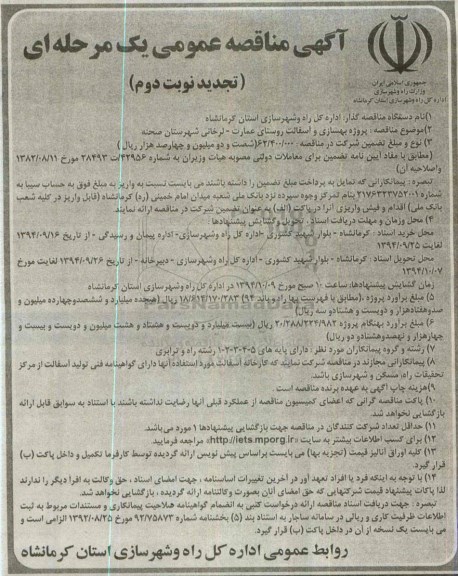 آگهی مناقصه عمومی یک مرحله ای
(تجدید نوبت دوم)
جمهوری اسلامی ایران
وزارت راه و شهرسازی
اداره کل راه و شهرسازی استان کرمانشاه
۱)نام دستگاه مناقصه گذار: اداره کل راه وشهرسازی استان کرمانشاه
۲)موضوع مناقصه : پروژه بهسازی و آسفالت روستای عمارت - لرخانی شهرستان صحنه
۳) نوع و مبلغ تضمین شرکت در مناقصه : ۶۲/۴۰۰/۰۰۰(شصت و دو میلیون و چهارصد هزار ریال)
(مطابق با مفاد آیین نامه تضمین برای معاملات دولتی مصوبه هیات وزیران به شماره ۴۴۹۵۶/ت۲۸۴۹۳ مورخ ۱۳۸۲/۰۸/۱۱
واصلاحیه آن)
تبصره : پیمانکارانی که تمایل به پرداخت مبلغ تضمین را داشته باشند می بایست نسبت به واریز به مبلغ فوق به حساب سیبا به
شماره ۲۱۷۶۳۲۳۷۵۲۰۰۱ بنام تمرکز وجوه سپرده نزد بانک ملی شعبه میدان امام خمینی (ره) کرمانشاه (قابل واریز در کلیه شعب
بانک ملی) اقدام و فیش واریزی آنرا در پاکت (الف) به عنوان تضمین شرکت در مناقصه ارائه نمایند.
۴) محل زمان و مهلت دریافت اسناد ، تحویل وگشایش پیشنهادها :
محل خرید اسناد : کرمانشاه - بلوار شهید کشوری -اداره کل راه وشهرسازی- اداره پیمان و رسیدگی - از تاریخ ۱۳۹۴/۰۹/۱۶
لغایت ۱۳۹۴/۰۹/۲۵
محل تحویل اسناد : کرمانشاه - بلوار شهید کشوری - اداره کل راه وشهرسازی - دبیرخانه - از تاریخ ۱۳۹۴/۰۹/۲۶ لغایت مورخ
۱۳۹۴/۱۰/۰۷
زمان گشایش پیشنهادها: ساعت ۱۰ صبح مورخ ۱۳۹۴/۱۰/۰۹ در اداره کل راه وشهرسازی استان کرمانشاه
۵) مبلغ برآورد پروژه ،(مطابق با فهرست بها راه و باند ۹۴) ۱۸/۶۱۲/۱۷۰/۲۸۳ ریال (هیجده میلیارد و ششصدودوازده میلیون و
صدوهفتادهزار و دویست و هشتادو سه ریال)
۶) مبلغ برآورد بهنگام پروژه ۲۰/۲۸۸/۲۲۴/۹۸۲ ریال (بیست میلیارد و دویست و هشتاد و هشت میلیون و دویست و بیست و
چهارهزار و نهصدوهشتادو دو ریال)
۷) رشته و گروه پیمانکاران مورد نظر : دارای پایه های ۵-۴-۳-۲-۱ رشته راه و ترابری
۸) پیمانکارانی مجازند در مناقصه شرکت نمایند که کارخانه آسفالت مورد استفاده آنها دارای گواهینامه فنی تولید آسفالت از مرکز
تحقیقات راه، مسکن و شهرسازی باشد.
۹)هزینه چاپ آگهی به عهده برنده مناقصه است .
۱۰) پاکت مناقصه گرانی که اعضای کمیسیون مناقصه از عملکرد قبلی آنها رضایت نداشته باشند با استناد به سوابق قابل ارائه
بازگشایی نخواهد شد.
۱۱) حداقل تعداد شرکت کنندگان در مناقصه جهت بازگشایی پیشنهادها ۱ مورد می باشد.
۱۲) برای کسب اطلاعات بیشتر به سایت «http://iets.mporg.ir» مراجعه فرمایید.
۱۳) کلیه اوراق آنالیز قیمت (تجزیه بها) می بایست براساس پیش نویس ارائه گردیده توسط کارفرما تکمیل و داخل پاکت (ب)
قرار گیرد.
۱۴) با توجه به اینکه فرد یا افراد تعهد آور در آخرین تغییرات اساسنامه ، جهت امضای اسناد ، حق وکالت به افراد دیگر را ندارند
لذا پاکات پیشنهاد قیمت شرکتهایی که حق امضای آنان بصورت وکالتنامه ارائه گردیده ، بازگشایی نخواهد شد.
تبصره : جهت دریافت اسناد مناقصه ارائه درخواست کتبی به انضمام گواهینامه صلاحیت پیمانکاری و مستندات مربوط به ثبت
اطلاعات ظرفیت کاری و ریالی در سامانه ساجار به استناد بند (۵) بخشنامه شماره ۹۲/۷۵۸۷۳ مورخ ۱۳۹۲/۰۸/۲۵ الزامی است و
می بایست یک نسخه از آن در داخل پاکت (ب) قرار گیرد.
روابط عمومی اداره کل راه وشهرسازی استان کرمانشاه